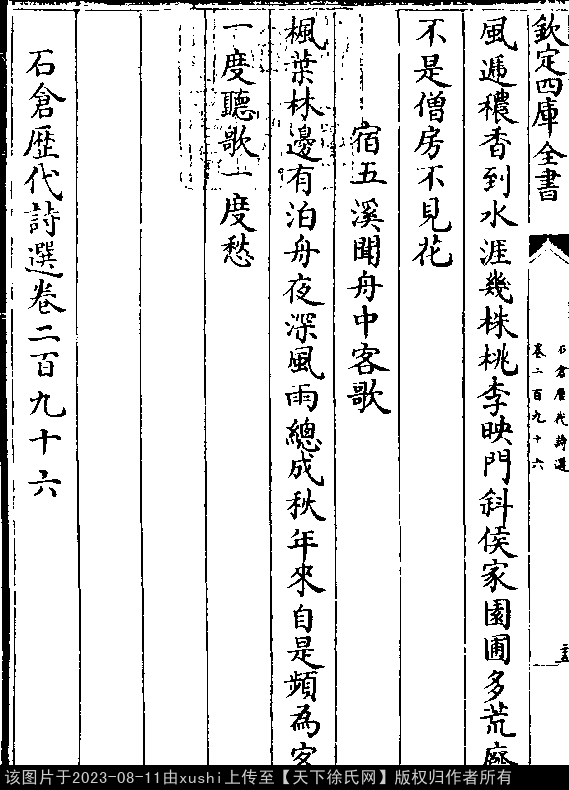 欽定四庫全書
石倉歷代詩選
卷二百九十六
風遞穠香到水涯幾株桃李映門斜侯家園圃多荒廢
不是僧房不見花
宿五溪聞舟中客歌
楓葉林邊有泊舟夜深風雨總成秋年來自是頻為客
一度聽歌一度愁
石倉歷代詩選卷二百九十六
该图片于2023-08-11由xushi上传至【天下徐氏网】版权归作者所有